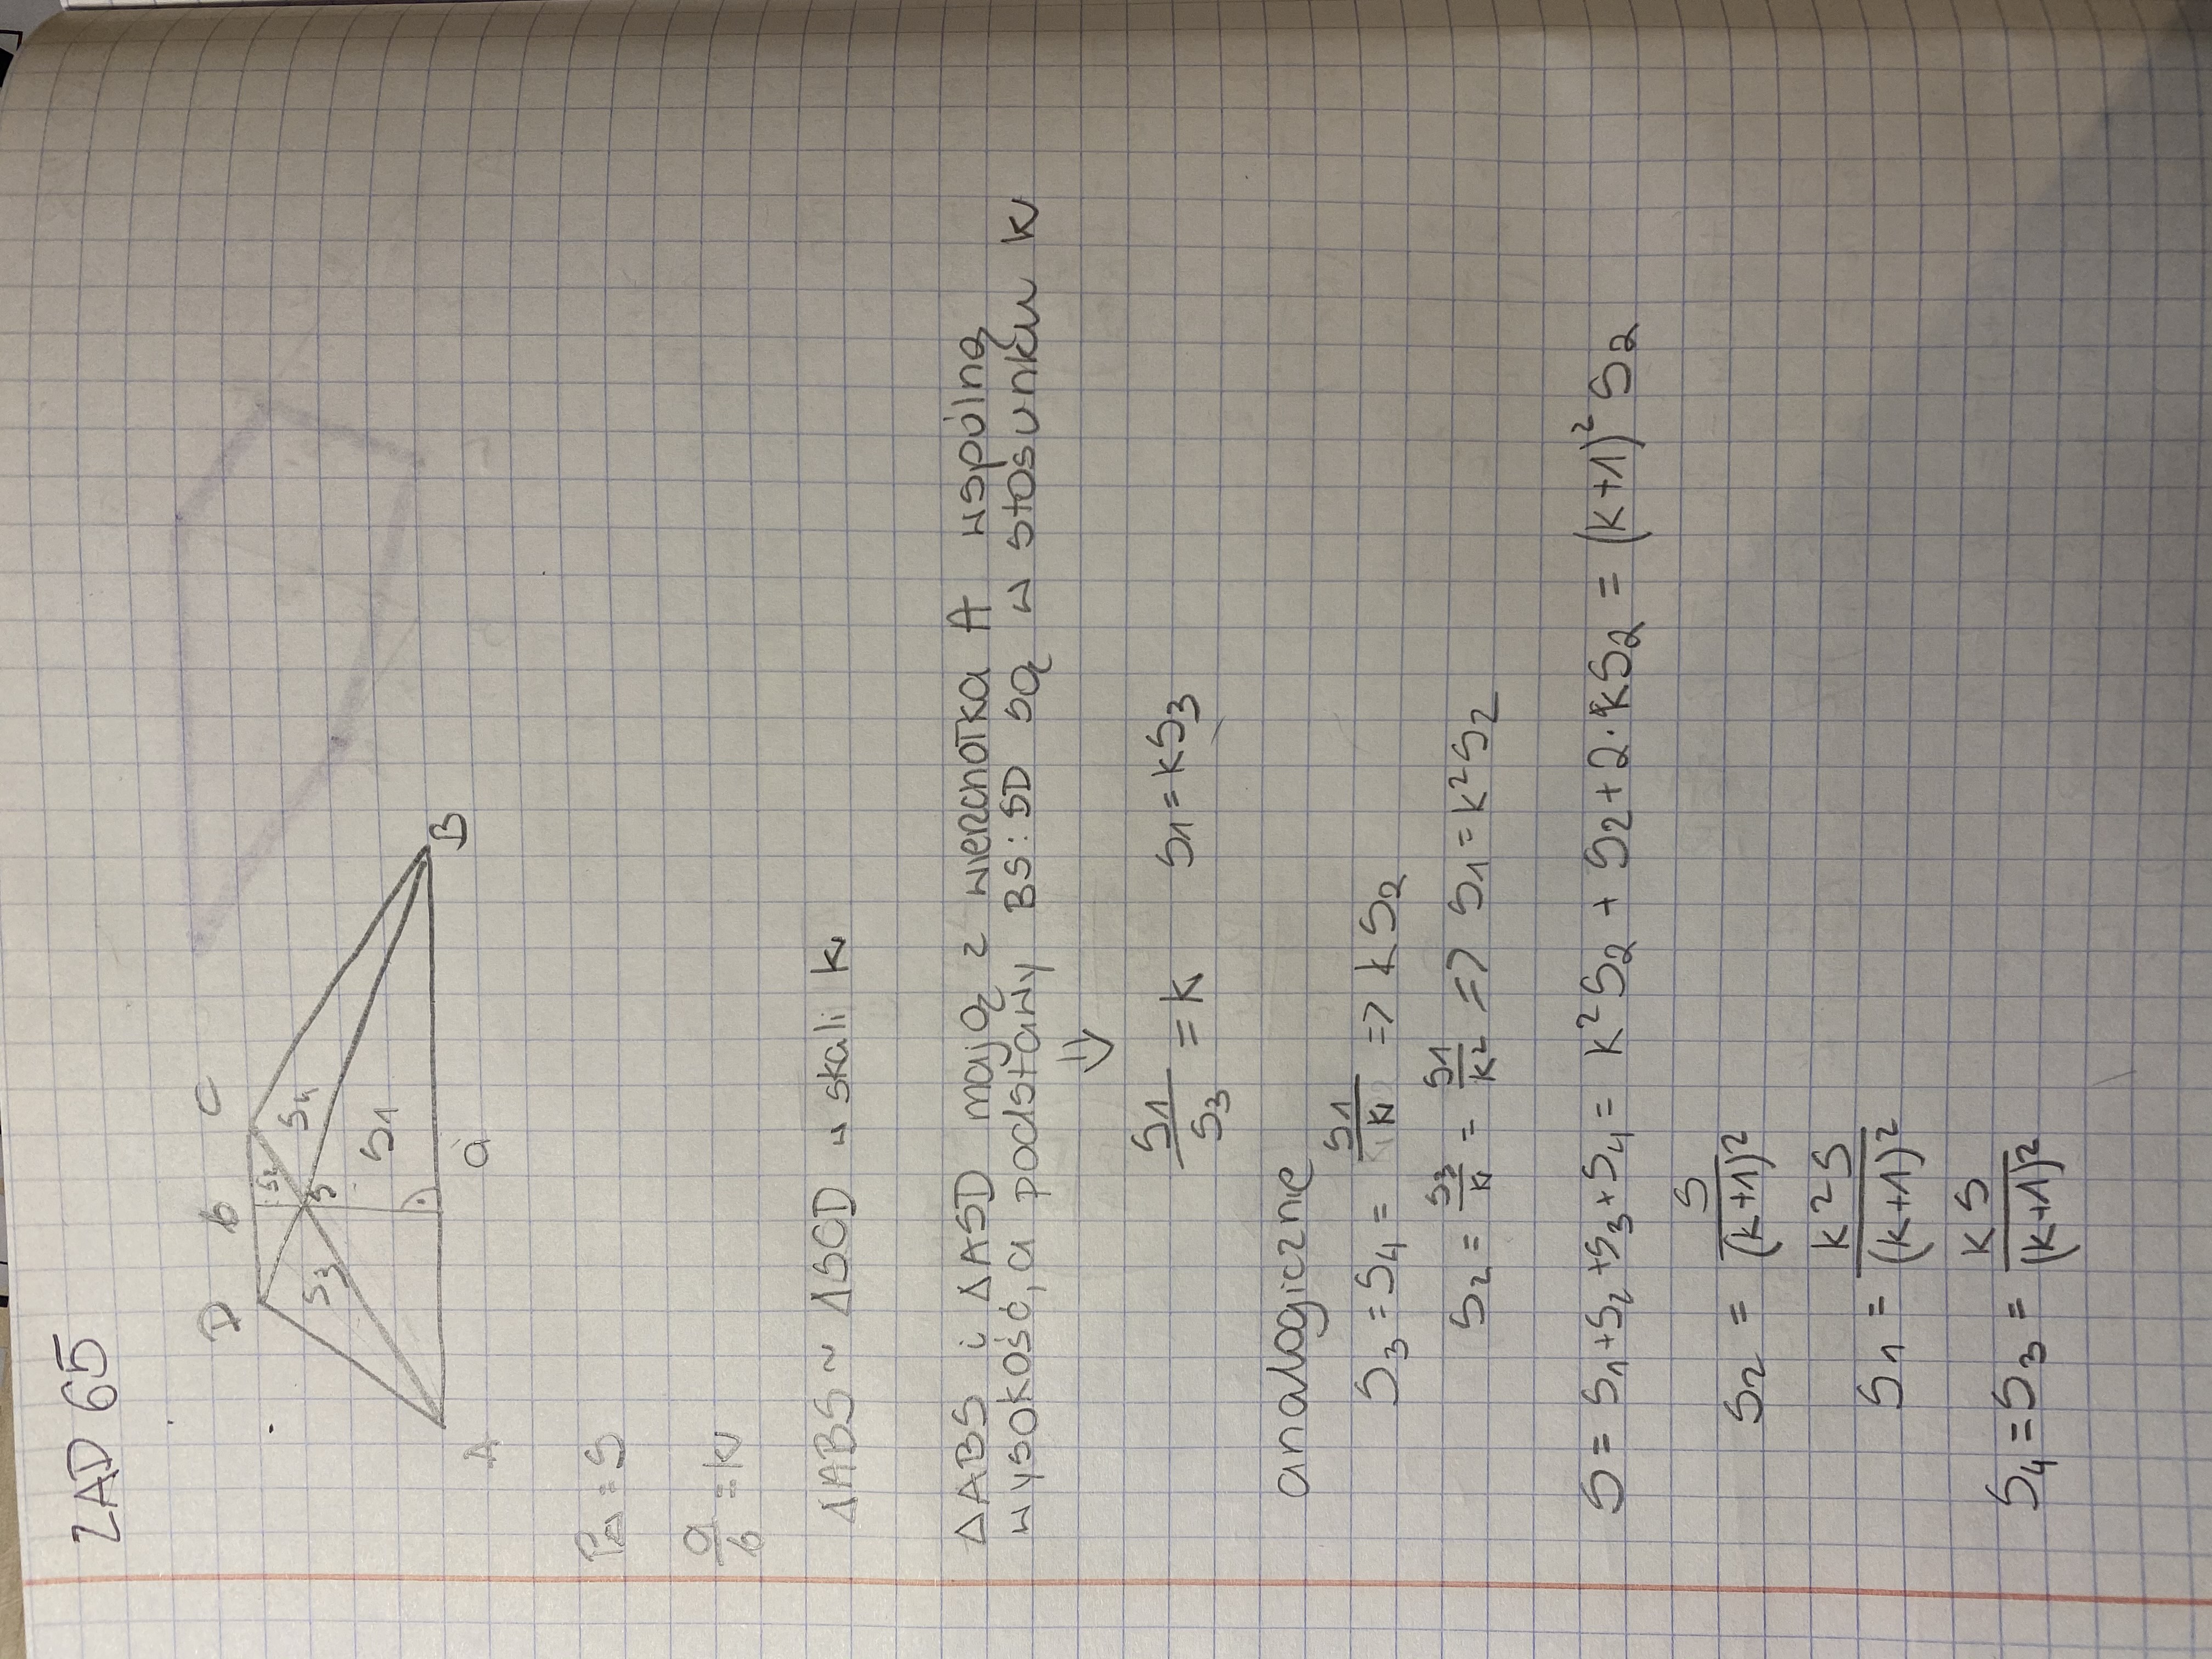 ZAD 65
D b C
S₂
S₃ S S₄
S₁
A a B
P▱ = S
a/b = k
ΔABS ~ ΔSCD w skali k
ΔABS i ΔASD mają z wierzchołka A wspólną
wysokość, a podstawy BS:SD są w stosunku k
⇓
S₁/S₃ = k S₁ = kS₃
analogicznie
S₃ = S₄ = S₁/k => kS₂
S₂ = S₃/k = S₁/k² => S₁ = k²S₂
S = S₁+S₂+S₃+S₄ = k²S₂ + S₂ + 2·kS₂ = (k+1)²S₂
S₂ = S/(k+1)²
S₁ = k²S/(k+1)²
S₄ = S₃ = kS/(k+1)²